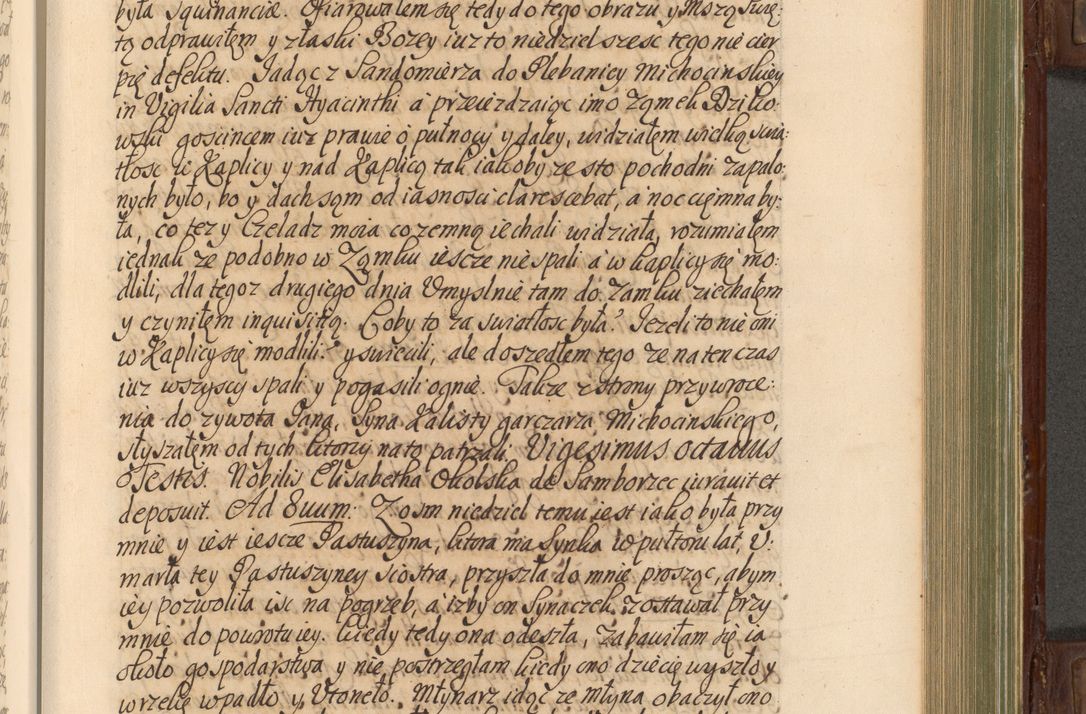 była Squinanciæ. Ofiarowałem się tedy do tego obrazu y Mszą Swię
tą odprawiłem y złaski Bozey iuz to niedziel szesc tego nie cier
pię defektu. Jadąc z Sandomierza do Plebaniey Michocinskiey
in Vigilia Sancti Hyacinthi a przeiezdzaiąc imo Zamek Dziko
wski goscincem iuz prawie o pułnocy y daley, widziałem wielką swia:
tłosc w Kaplicy y nad Kaplicą tak iakoby ze sto pochodni zapalo
nych było, bo y dach sam od iasnosci clarescebat, a noc ciemna by:
ła, co tez y Czeladz moia co zemną iechali widziała, rozumiałem
iednak ze podobno w Zamku iescze nie spali a w kaplicy się mo:
dlili, dla tegoz drugiego dnia Umyslnie tam do Zamku ziechałem
y czyniłem inquisitią. Coby to za swiatłosc była? Jezeli to nie oni
w Kaplicy się modlili? y swiecili, ale doszedłem tego ze na ten czas
iuz wszyscy spali y pogasili ognie. Takze z strony przywroce:
nia do zywota Jana, Syna Kalisty garczarza Michocinskiego,
słyszałem od tych ktorzy na to patrzali. Vigesimus octauus
Testis. Nobilis Elisabetha Okolska de Samborzec iurauit et
deposuit. Ad 8uum. Z osm niedziel temu iest iako była przy
mnie y iest iescze Pastuszyna, ktora ma Synka w pułtoru lat, U:
marła tey Pastuszyney Siostra, przyszła do mnie prosząc, abym
iey pozwoliła isc na pogrzeb, a izby on Synaczek zostawał przy
mnie do powrotu iey. Kiedy tedy ona odeszła, zabawiłam się ia
około gospodarstwa y nie postrzegłam kiedy ono dziecię wyszło y
w rzekę wpadło y Utoneło. Młynarz idąc ze młyna obaczył ono